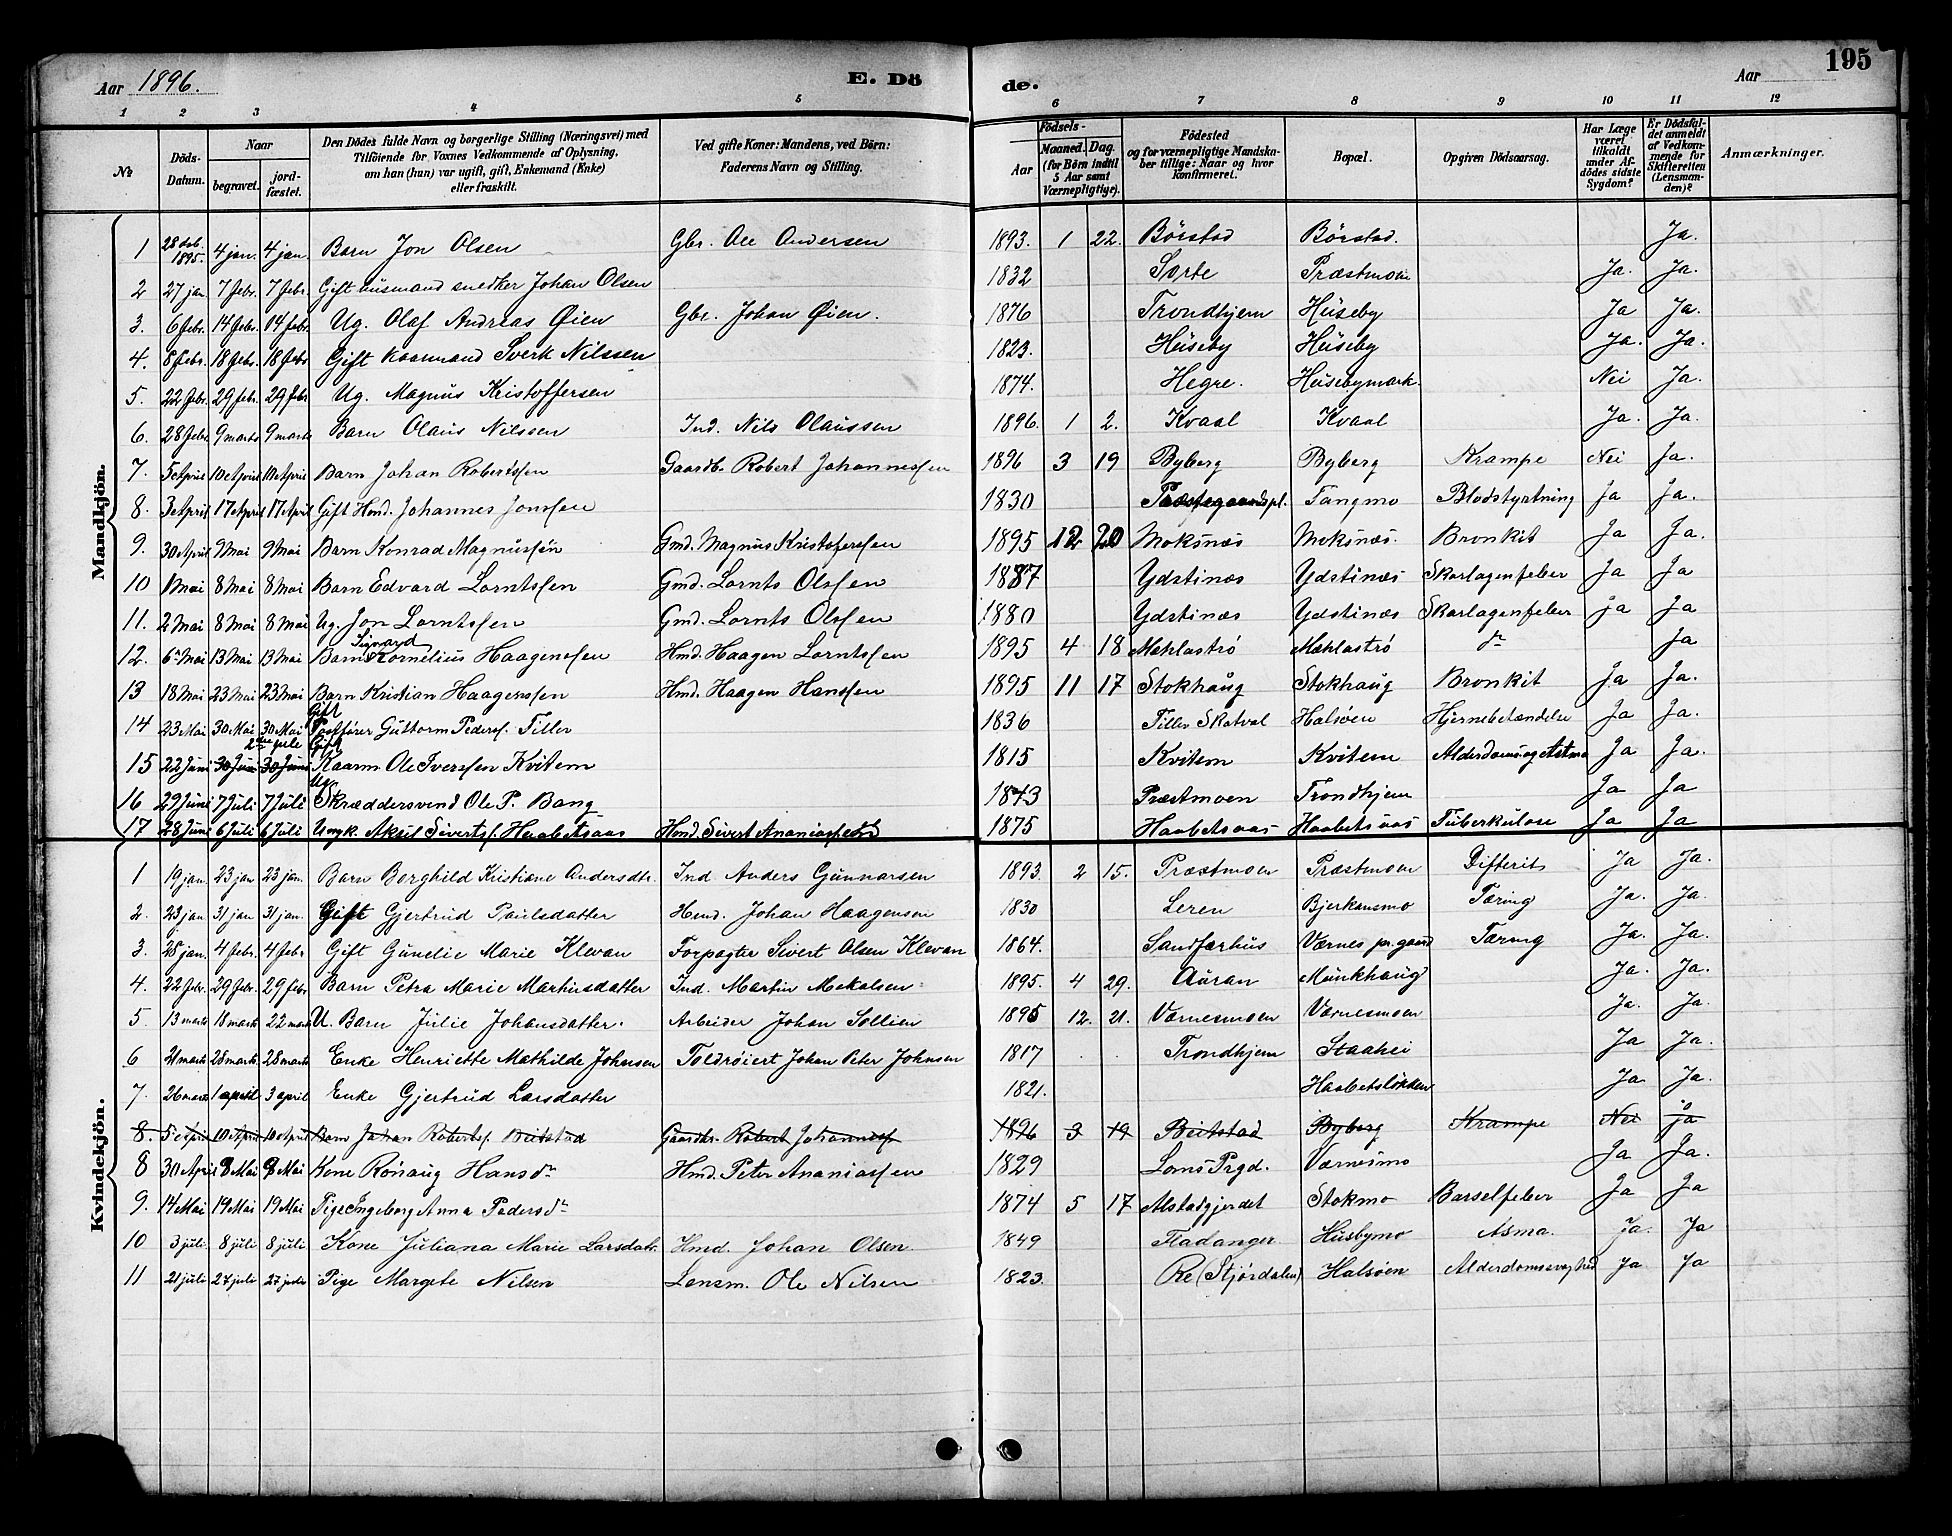 Aar 1896. E. Dö de. Aar 195
1 2 3 4 5 6 7 8 9 10 11 12
№ Döds-Datum. Naar begravet. jordfæstet. Den Dödes fulde Navn og borgerlige Stilling (Næringsvei) med Tilföiende for Voxnes Vedkommende af Oplysning, om han (hun) var ugift, gift, Enkemand (Enke) eller fraskilt. Ved gifte Koner: Mandens, ved Börn: Faderens Navn og Stilling. Födsels- Aar Maaned. Dag. (for Börn indtil 5 Aar samt Værnepligtige). Födested og for værnepligtige Mandskaber tillige: Naar og hvor konfirmeret. Bopæl. Opgiven Dödsaarsag. Har Læge været tilkaldt under Afdödes sidste Sygdom? Er Dödsfaldet anmeldt af Vedkommende for Skifteretten (Lensmanden)? Anmærkninger.
Mandkjön.
1 28 dcb. 1895. 4 jan. 4 jan. Barn Jon Olsen Gbr. Ole Andersen 1893. 1 22. Börstad Börstad. Ja.
2 27 jan. 7 febr. 7 febr. Gift husmand snedker Johan Olsen 1832 Sorte Præstmoen Ja. Ja.
3. 6 febr. 14 febr. 14 febr. Ug. Olaf Andreas Øien Gbr. Johan Øien. 1876 Trondhjem Húseby Ja Ja.
4. 8 febr. 18 febr. 18 febr. Gift kaarmand Sverk Nilssen 1823. Húseby Húseby Ja. Ja.
5. 22 febr. 29 febr. 29 febr. Ug. Magnus Kristoffersen 1874. Hegre. Húsebymark. Nei Ja.
6. 28 febr 9 marts 9 marts Barn Olaus Nilssen Ind. Nils Olaussen 1896. 1 2. Kvaal Kvaal Ja. Ja.
7. 5 April 10 April 10 April Barn Johan Robertssen Gaardb. Robert Johannessen 1896 3 19 Byberg Byberg Krampe Nei Ja.
8. 3 April 17 April 17 April Gift Hmd. Johannes Jonssen 1830 Præstegaardspl. Tangmo Blodstyrtning Ja Ja.
9. 30 April 9 Mai 9 Mai Barn Konrad Magnussøn Gmd. Magnus Kristofersen 1895 12 20 Moksnæs Moksnæs. Bronkit Ja Ja.
10 1 Mai 8 Mai 8 Mai Barn Edvard Lorntssen Gmd. Lornts Olssen 1887 Ydstinæs Ydstinæs Skarlagensfeber Ja Ja
11. 2 Mai 8 Mai 8 Mai Ug. Jon Lorntssen Gmd. Lornts Olssen 1880 Ydstinæs Ydstinæs Skarlagensfeber ja Ja
12. 6 Mai 13 Mai 13 Mai Barn Sigvard Kornelius Haagenssen Hmd. Haagen Lorntssen 1895 4 18 Mæhlastrø Mæhlastrø do Ja
13 18 Mai 23 Mai 23 Mai Barn Kristian Haagenssen Hmd. Haagen Hanssen 1895 11 17 Stokhaug Stokhaug Bronkit Ja Ja.
14 23 Mai 30 Mai 30 Mai Gift Postfører Guttorm Peders. Tiller 1836 Tiller Skatval Halsøen Hjernebetændelse Ja Ja.
15 22 Juni 30 Juni 30 Juni 2 juli Gift Kaarm. Ole Iverssen Kvitem 1815 Kvitem Kvitem Alderdom og Astma Ja Ja.
16 29 Juni 7 Juli 7 Juli Ug. Skræddersvend Ole P. Bang 1873 Præstmoen Trondhjem Ja Ja
17 28 Juni 6 Juli 6 Juli Ungk. Aksel Siverts. Haabetsaas Hmd. Sivert Ananiassen 1875 Haabetsaas Haabetsaas Tuberkulose Ja Ja
Kvindekjön.
1 19 jan. 23 jan 23 jan. Barn Borghild Kristiane Andersdtr. Ind. Anders Gunnarsen 1893. 2 15. Præstmoen Præstmoen Difterit Ja Ja.
2. 23 jan 31 jan 31 jan. Gift Gjertrud Paulsdatter Hmd. Johan Haagensen 1830 Leren Bjerkansmo Tæring Ja. Ja.
3. 28 jan. 4 febr. 4 febr. Gift Gunelie Marie Klevan Forpagter Sivert Olsen Klevan 1864. Sandfærhus Værnes pr. gaard Tæring Ja. Ja.
4. 22 febr. 29 febr. 29 febr. Barn Petra Marie Martinsdatter Ind. Martin Mekalsen 1895. 4 29. Auran Munkhaug Ja. Ja.
5. 13 marts 18 marts 22 marts U. Barn Julie Johansdatter. Arbeider Johan Sollien 1895 12. 21. Værnesmoen Værnesmoen Ja. Ja.
6 21 marts 28 marts 28 marts Enke Henriette Mathilde Johnsen Toldrøiert Johan Peter Johnsen 1817 Trondhjem Ja Ja.
7. 26 marts 1 april 3 april Enke Gjertrud Larsdatter 1821. Ja Ja.
8. 5 April 10 April 10 April Barn Johan Roberts. Beitstad Gaardbr. Robert Johanness. 1896 3 19 Beitstad Byberg Krampe Nei ja
8 30 April 8 Mai 8 Mai Kone Rönaug Hansdr Hmd. Peter Ananiassen 1829 Loms Prgd. Værnesmo Ja Ja.
9. 14 Mai 19 Mai 19 Mai Pige Ingeborg Anna Pedersdr 1874 5 17 Alstadgjerdet Stokmo Barselfeber Ja Ja
10 3 juli 8 juli 8 juli Kone Juliana Marie Larsdatr. Hmd. Johan Olsen. 1849 Fladanger Husbymo Asma. Ja. Ja
11 21 juli 27 juli 27 juli Pige Margete Nilsen Lensm. Ole Nilsen 1823. Re (Stjørdalen) Halsøen Alderdomssvaghed Ja Ja